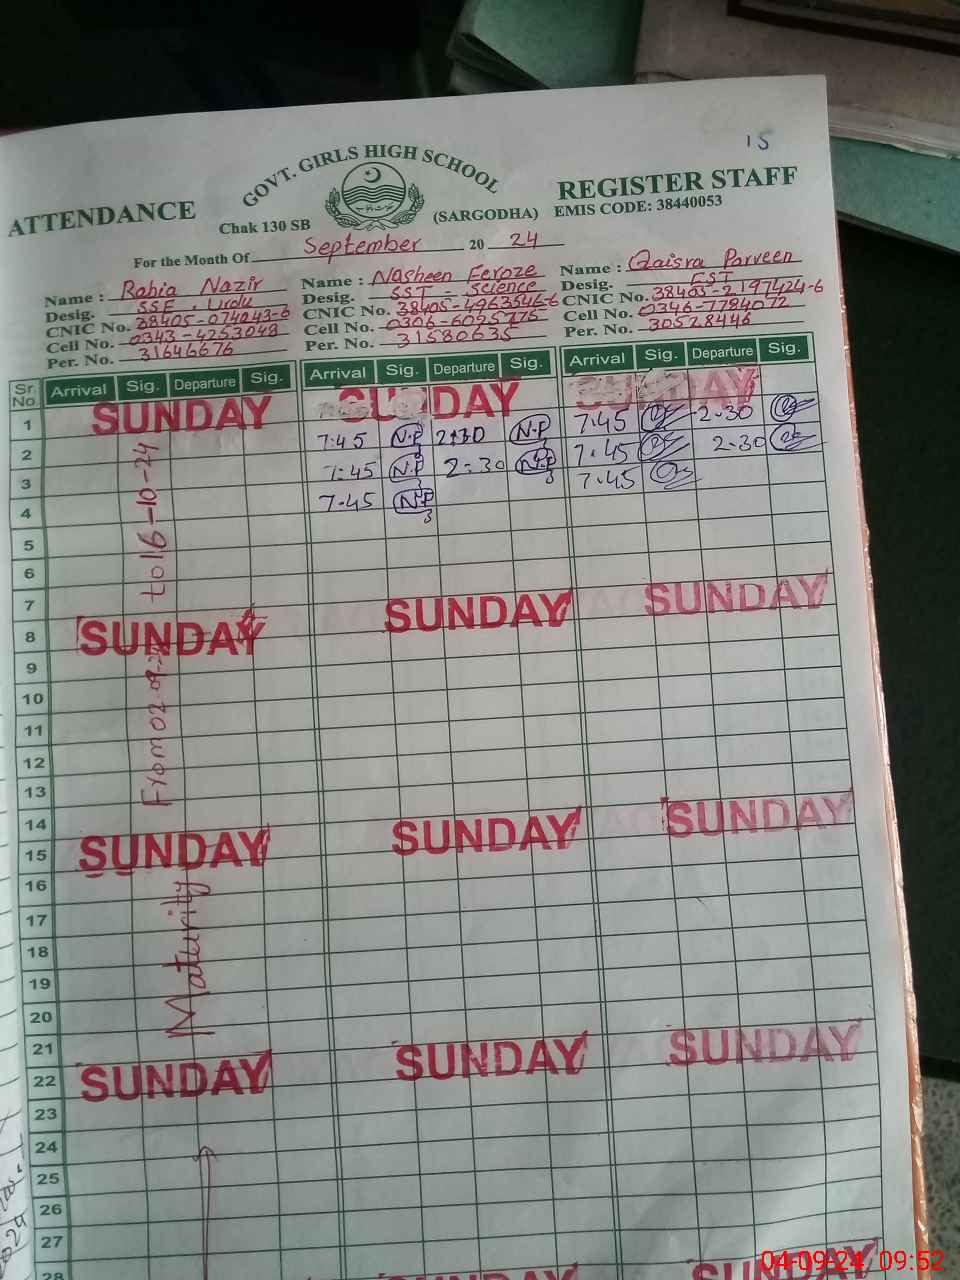 15
GOVT. GIRLS HIGH SCHOOL
ATTENDANCE REGISTER STAFF
Chak 130 SB (SARGODHA) EMIS CODE: 38440053
For the Month Of September 20 24
Name : Rabia Nazir
Desig. SSE, Urdu
CNIC No.
Cell No. 0343-4253048
Per. No. 31646676
Name : Nosheen Feroze
Desig. SST - Science
CNIC No. 38405-4963546-6
Cell No.
Per. No. 31580635
Name : Qaisra Parveen
Desig. EST
CNIC No. 38405-2197424-6
Cell No. 0346-7784072
Per. No. 30528446
Sr. No. Arrival Sig. Departure Sig. Arrival Sig. Departure Sig. Arrival Sig. Departure Sig.
1 SUNDAY SUNDAY
2 7:45 N.F 2:30 N.F 7:45 2:30
3 7:45 N.F 2:30 N.F 7:45 2:30
4 7:45 N.F 7:45
5
6
7
8 SUNDAY SUNDAY SUNDAY
9
10
11
12
13
14
15 SUNDAY SUNDAY SUNDAY
16
17
18
19
20
21
22 SUNDAY SUNDAY SUNDAY
23
24
25
26
27
28
Maturity From 02-09-24 to 16-10-24
SUNDAY SUNDAY
04-09-24 09:52